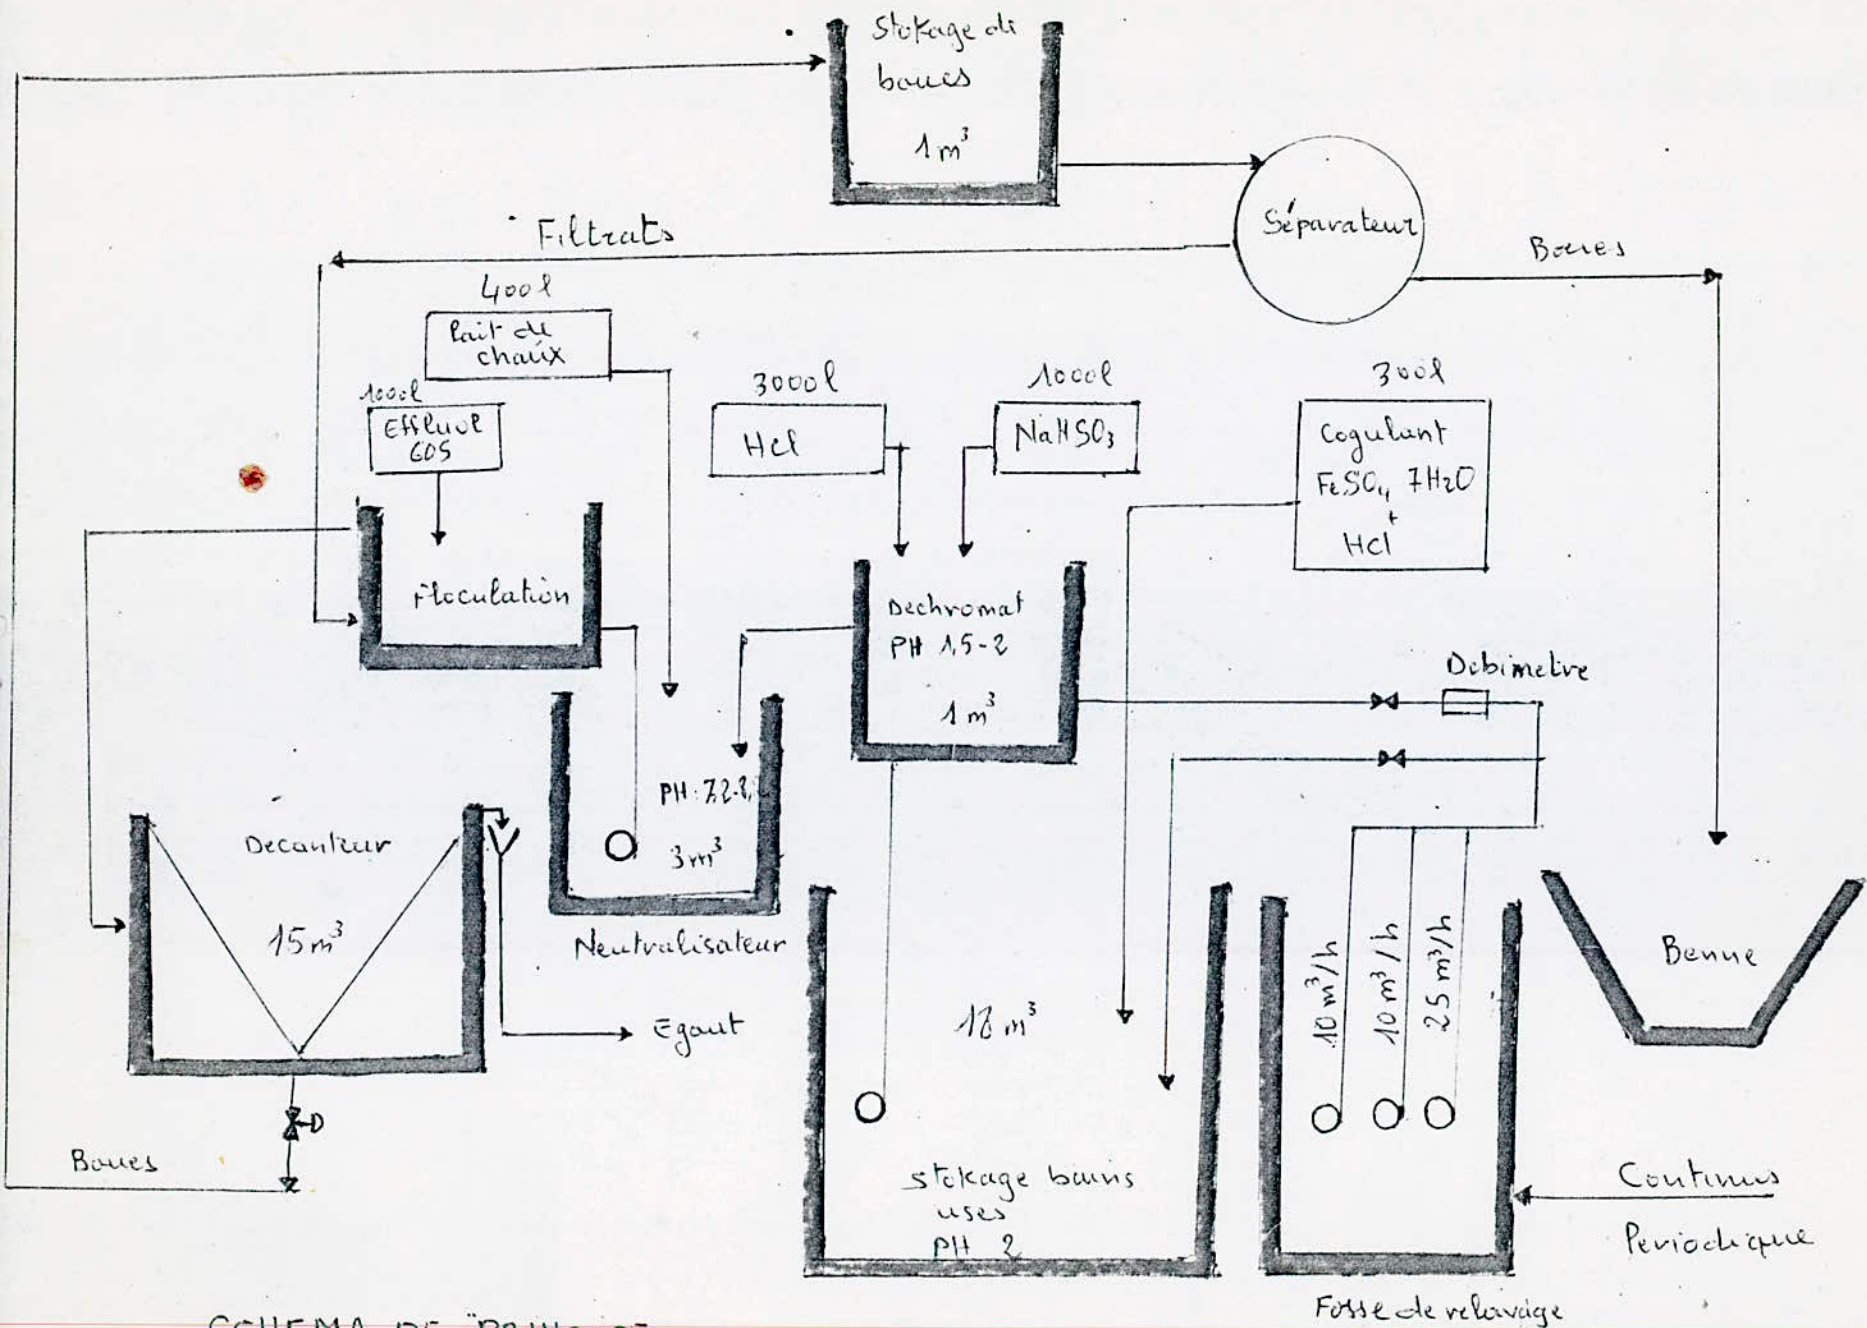 Stokage de
boues
1 m³
Séparateur
Filtrats
Boues
400 l
Lait de
chaux
1000 l
Effluve
605
3000 l
HCl
1000 l
NaHSO₃
300 l
Cogulant
FeSO₄ 7H₂O
+
HCl
Floculation
Dechromat
PH 1,5-2
1 m³
Debimetre
PH : 7,2-8,
3 m³
Neutralisateur
Decanteur
15 m³
Egout
Boues
18 m³
stokage bains
uses
PH 2
10 m³/h
10 m³/h
25 m³/h
Benne
Continus
Periodique
Fosse de relavage
SCHEMA DE